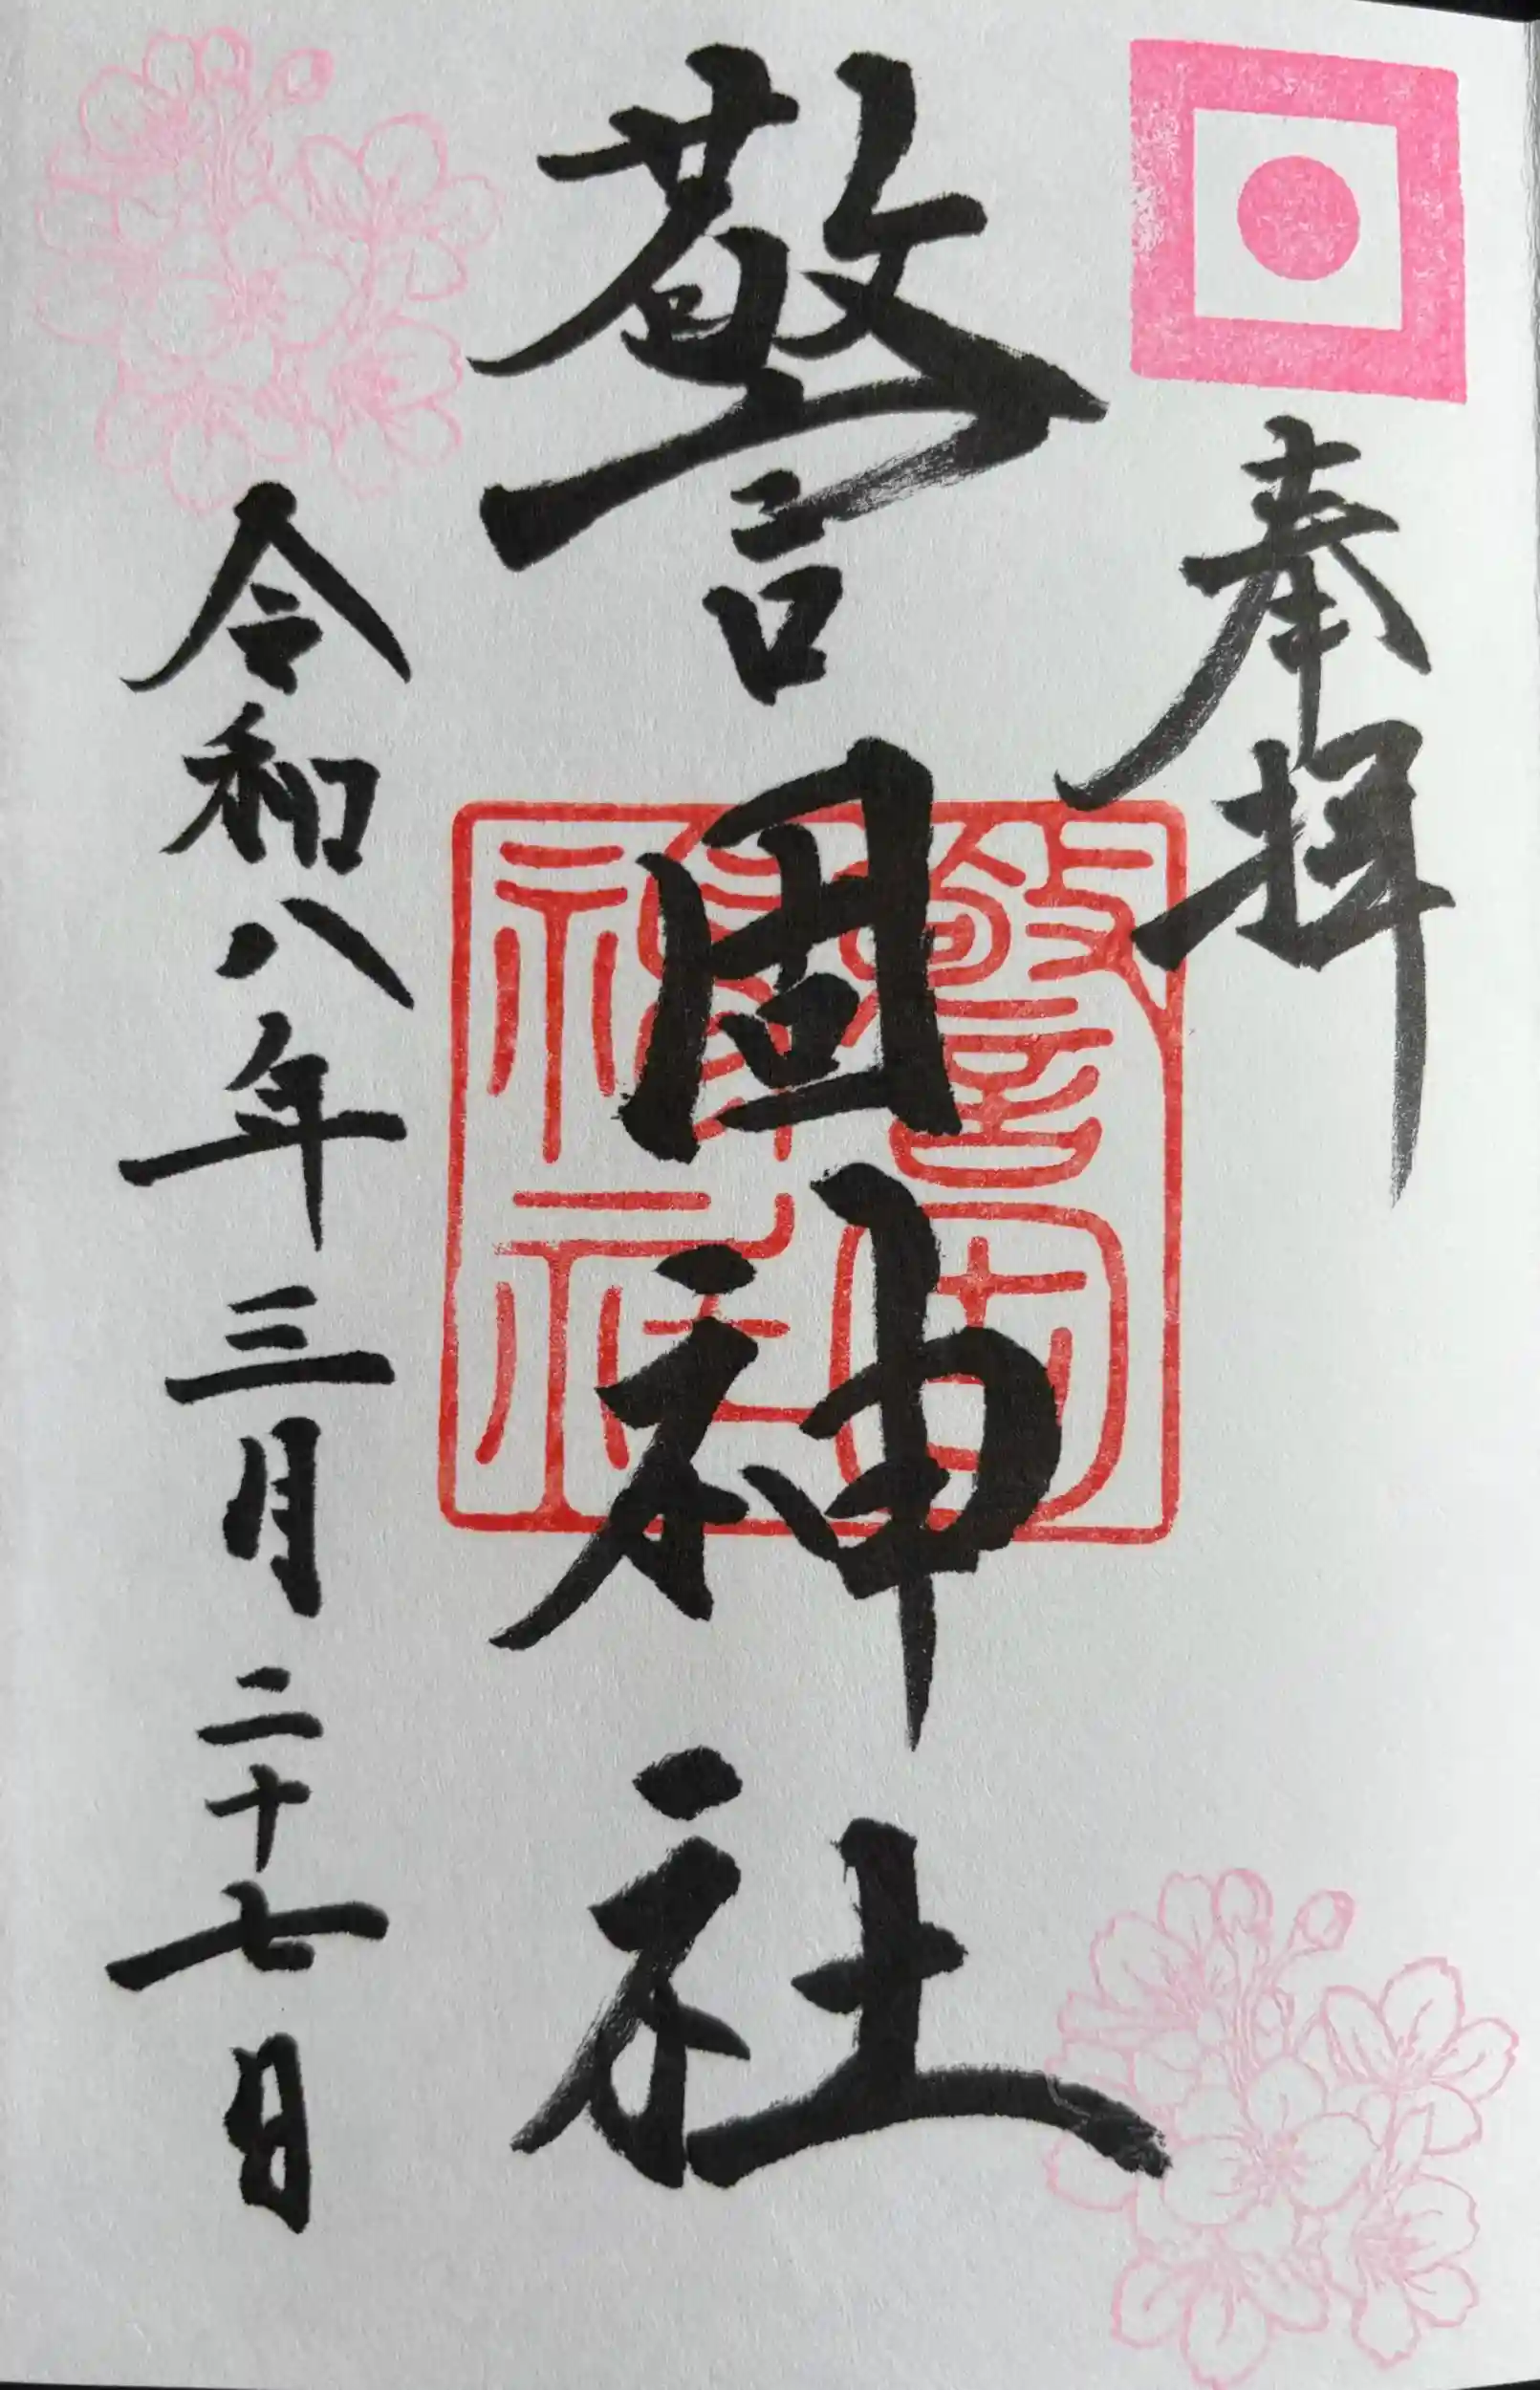 奉拝
警固神社
警固神社
令和八年三月二十七日